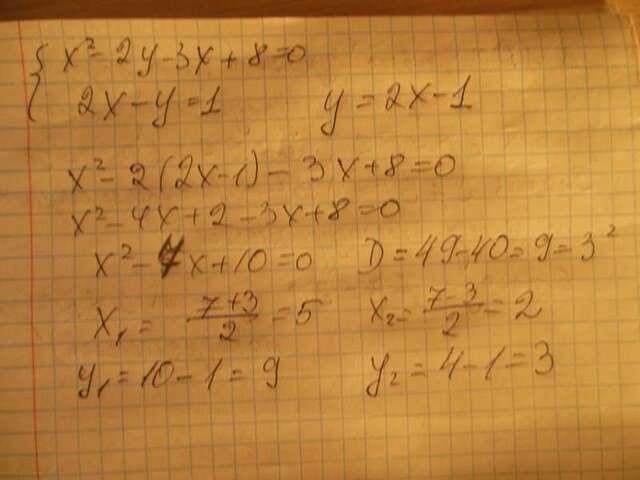 x² - 2y - 3x + 8 = 0
2x - y = 1 y = 2x - 1
x² - 2(2x - 1) - 3x + 8 = 0
x² - 4x + 2 - 3x + 8 = 0
x² - 7x + 10 = 0 D = 49 - 40 = 9 = 3²
x₁ = (7 + 3)/2 = 5 x₂ = (7 - 3)/2 = 2
y₁ = 10 - 1 = 9 y₂ = 4 - 1 = 3